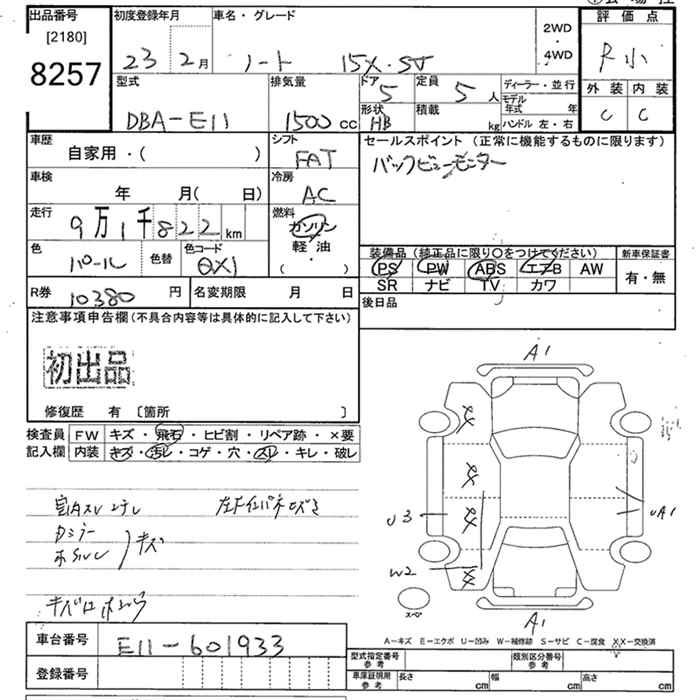 出品番号
[2180]
8257
初度登録年月
23 2月
車名・グレード
ノート 15X・SV
2WD
・
4WD
評価点
R小
外装 内装
C C
型式
DBA-E11
排気量
1500 cc
ドア
5
定員
5人
形状
HB
積載
kg
ディーラー・並行
モデル年式 年
ハンドル 左・右
車歴
自家用・( )
シフト
FAT
セールスポイント (正常に機能するものに限ります)
バックビューモニター
車検
年 月( 日)
冷房
AC
走行
9万1千822 km
燃料
ガソリン
軽・油
( )
色
パール
色替
色コード
QX1
装備品 (純正品に限り○をつけてください)
PS PW ABS エアB AW
SR ナビ TV カワ
新車保証書
有・無
R券 10380 円
名変期限 月 日
後日品
注意事項申告欄(不具合内容等は具体的に記入して下さい)
初出品
修復歴 有 〔箇所 〕
検査員
記入欄
FW キズ・飛石・ヒビ割・リペア跡・×要
内装 キズ・汚レ・コゲ・穴・スレ・キレ・破レ
キズ
A1
U3
UA1
W2
スペア
A1
A-キズ E-エクボ U-凹み W-補修跡 S-サビ C-腐食 XX-交換済
車台番号 E11-601933
登録番号
型式指定番号
参考
類別区分番号
参考
車庫証明用
参考
長さ cm 幅 cm 高さ cm